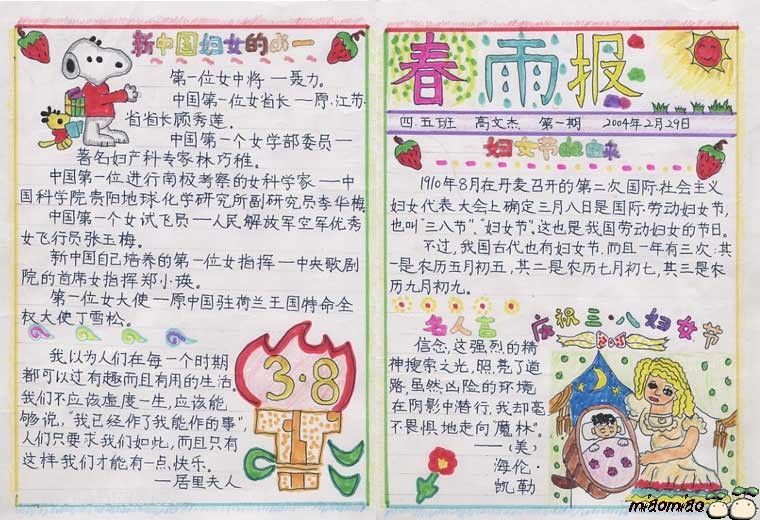 新中国妇女的di一
第一位女中将—聂力。
中国第一位女省长—原·江苏
省省长顾秀莲。
中国第一个女学部委员—
著名妇产科专家林巧稚。
中国第一位进行南极考察的女科学家—中
国科学院贵阳地球化学研究所副研究员李华梅
中国第一个女试飞员—人民解放军空军优秀
女飞行员张玉梅。
新中国自己培养的第一位女指挥—中央歌剧
院的首席女指挥郑小瑛。
第一位女大使—原中国驻荷兰王国特命全
权大使丁雪松。
我以为人们在每一个时期
都可以过有趣而且有用的生活.
我们不应该虚度一生,应该能
够说,“我已经作了我能作的事”,
人们只要求我们如此,而且只有
这样我们才能有一点快乐。
—居里夫人
3·8
春雨报
四.五班 高文杰 第一期 2004年2月29日
妇女节的由来
1910年8月在丹麦召开的第二次国际社会主义
妇女代表大会上确定三月八日是国际劳动妇女节,
也叫“三八节”、“妇女节”。这也是我国劳动妇女的节日。
不过,我国古代也有妇女节.而且一年有三次:其
一是农历五月初五,其二是农历七月初七,其三是农
历九月初九。
名人言
信念,这强烈的精
神搜索之光,照亮了道
路,虽然凶险的环境
在阴影中潜行,我却毫
不畏惧地走向“魔林”。
—(美)
海伦·
凯勒
庆祝三·八妇女节
miaomiao